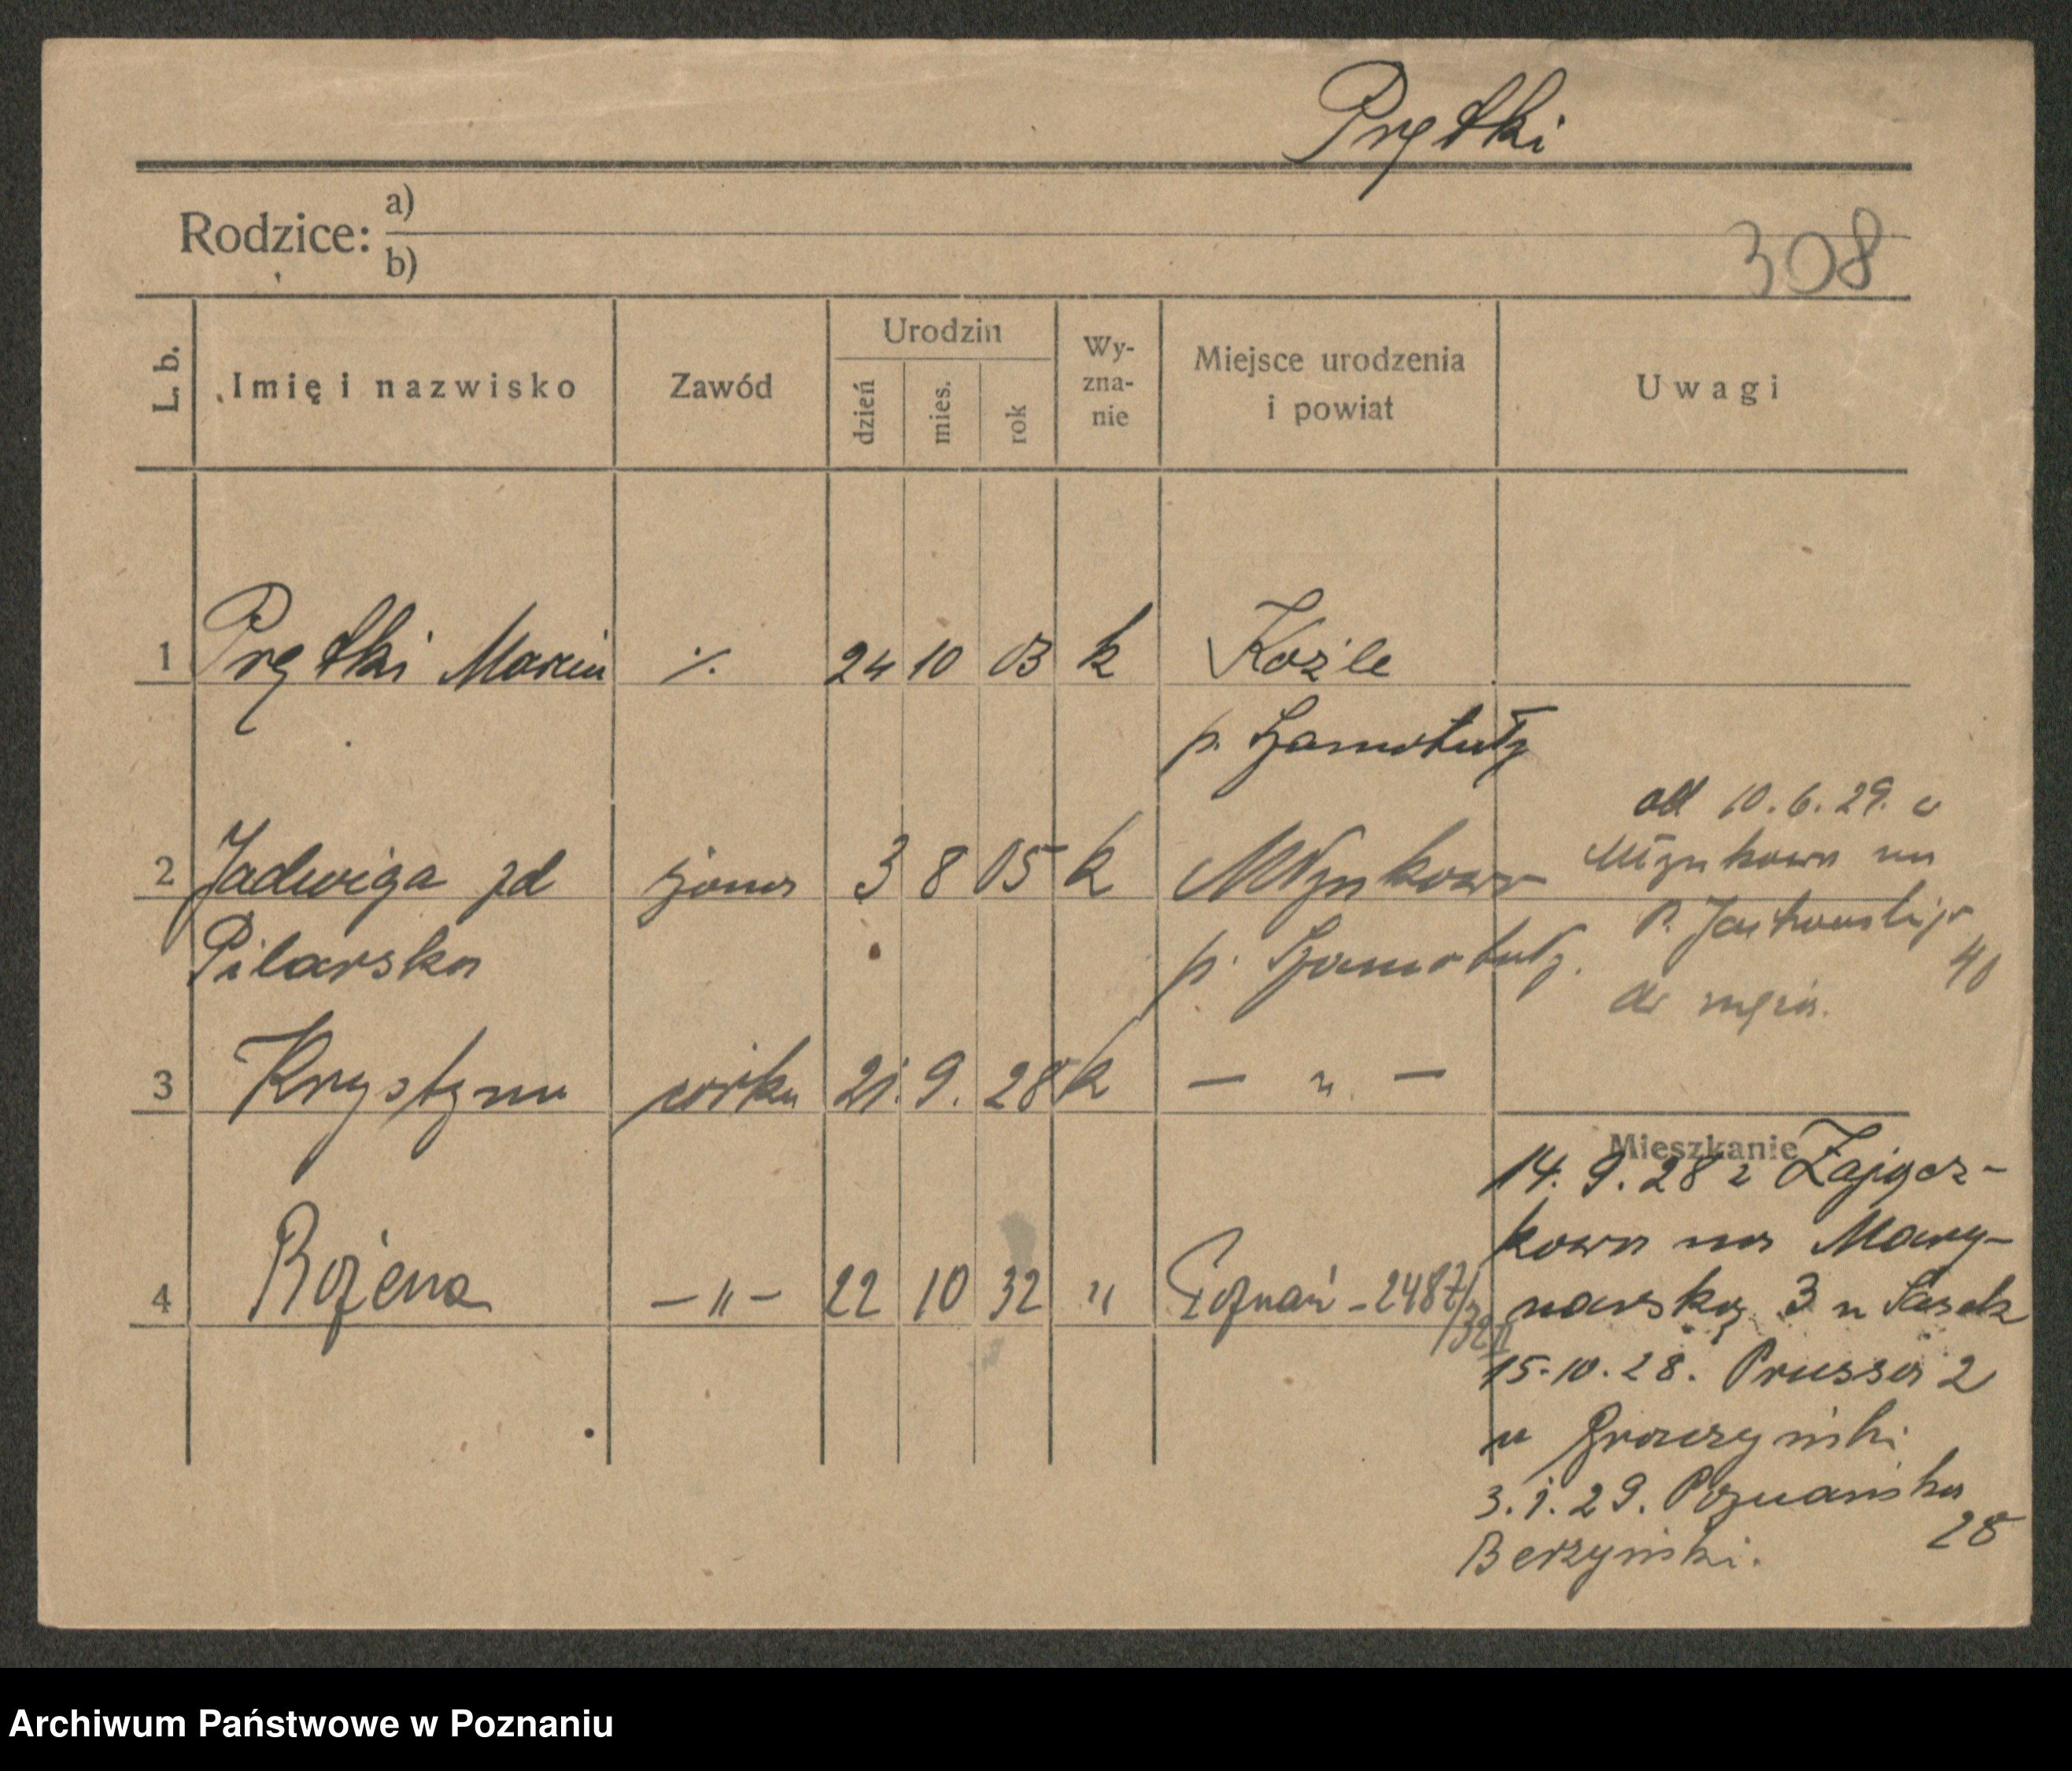 Prętki
Rodzice: a)
b)
308
L. b. Imię i nazwisko Zawód Urodzin dzień mies. rok Wy-zna-nie Miejsce urodzenia i powiat Uwagi
1 Prętki Marcin ./. 24 10 03 k Koźle
p. Szamotuły
od 10.6.29. z
2 Jadwiga zd żona 3 8 05 k Młynkowo Młynkowa na
Pilarska p. Szamotuły. P. Jackowskiego
40
do męża.
3 Krystyna córka 21. 9. 28 k — " —
Mieszkanie
14. 9. 28 z Zającz-
kowa na Mary-
4 Bożena — " — 22 10 32 " Poznań - 2487/32 II
narską 3 u Sasak
15.10.28. Prussa 2
u
3.1.29. Poznańska
28
Berzyński.
Archiwum Państwowe w Poznaniu